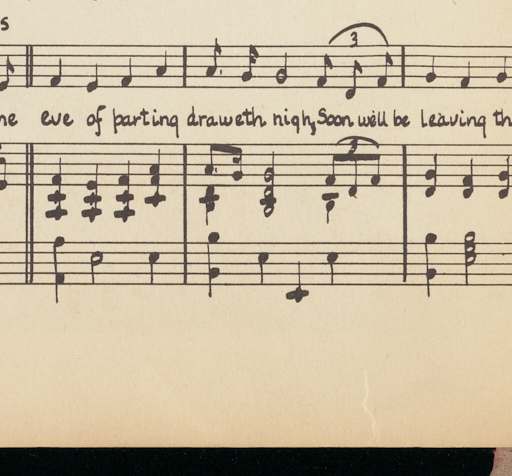 s
ne eve of parting draweth nigh, Soon we'll be leaving th
3
3